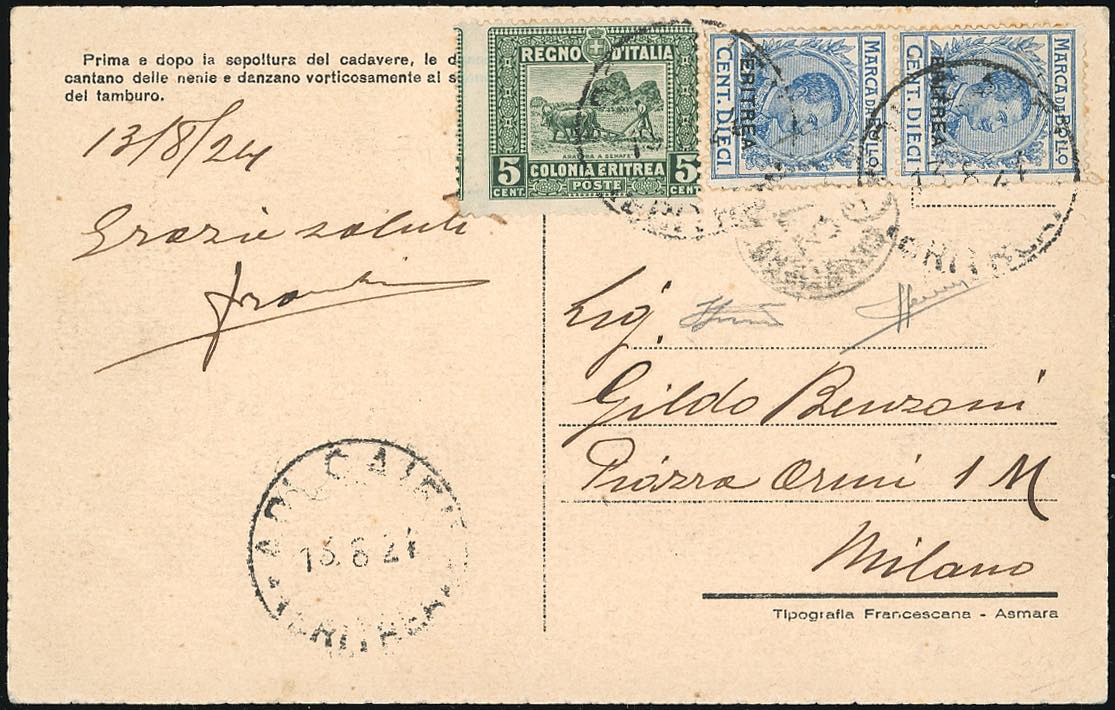 Prima e dopo la sepoltura del cadavere, le
cantano delle nenie e danzano vorticosamente al
del tamburo.
13/8/24
Grazie saluti
REGNO D'ITALIA
ARATURA A SENAFE
5 COLONIA ERITREA 5
CENT. POSTE CENT.
MARCA DA BOLLO
ERITREA
CENT. DIECI
MARCA DA BOLLO
ERITREA
CENT. DIECI
ERITREA
Sig.
Gildo Benzoni
Piazza Orsini 1 M
Milano
Tipografia Francescana - Asmara
ADI CAIEH
13.8.24
ERITREA